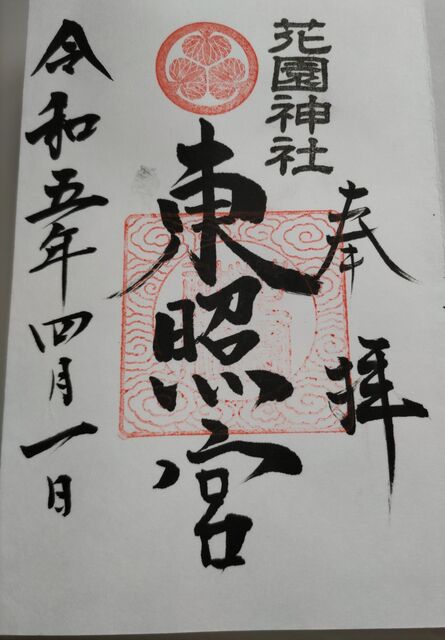 花園神社
奉拝
東照宮
令和五年四月一日